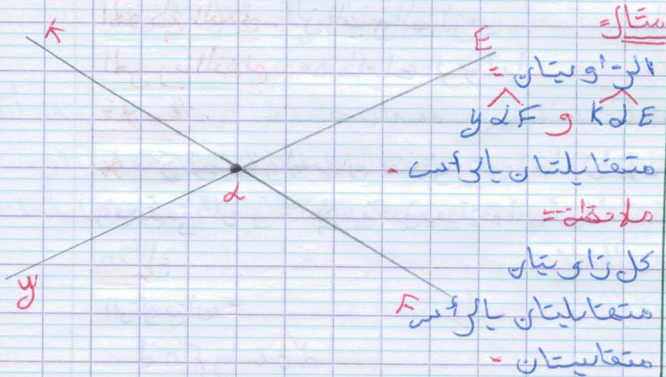 مثال=
الزاويتان =
KαE و yαF
متقابلتان بالرأس.
ملاحظة==
كل زاويتان
متقابليتان بالرأس
متقايستان -
K
E
α
y
F